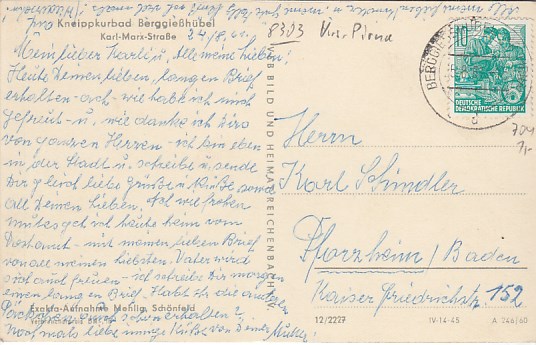 Kneippkurbad Berggießhübel
Karl-Marx-Straße 24/8. 60.
Mein lieber Karli u. Alle meine lieben!
Heute Deinen lieben, langen Brief
erhalten - ach - wie habe ich mich
gefreut - u. wie danke ich Dir
von ganzem Herzen - ich bin eben
in der Stadt u. schreibe u. sende
Dir gleich liebe Grüße u. Küße, sowie
all Deinen Lieben. Ach wie frohen
Mutes geh ich heute heim vom
Postamt - mit meinem lieben Brief
von all meinen liebsten. Vater wird
sich auch freuen - ich schreibe Dir morgen
einen langen Brief. Habt ihr die anderen
schon erhalten?
Nochmals liebe innige Küße von Deiner Mutter.
Exakta-Aufnahme Mehlig, Schönfeld
8303 Krs. Pirna
VEB BILD UND HEIMAT REICHENBACH
BERGGIESSHÜBEL
10
DEUTSCHE
DEMOKRATISCHE REPUBLIK
704
1,-
Herrn
Karl Schindler
Pforzheim / Baden
Kaiser Friedrichstr. 152
12/2227 IV-14-45 A 246/60